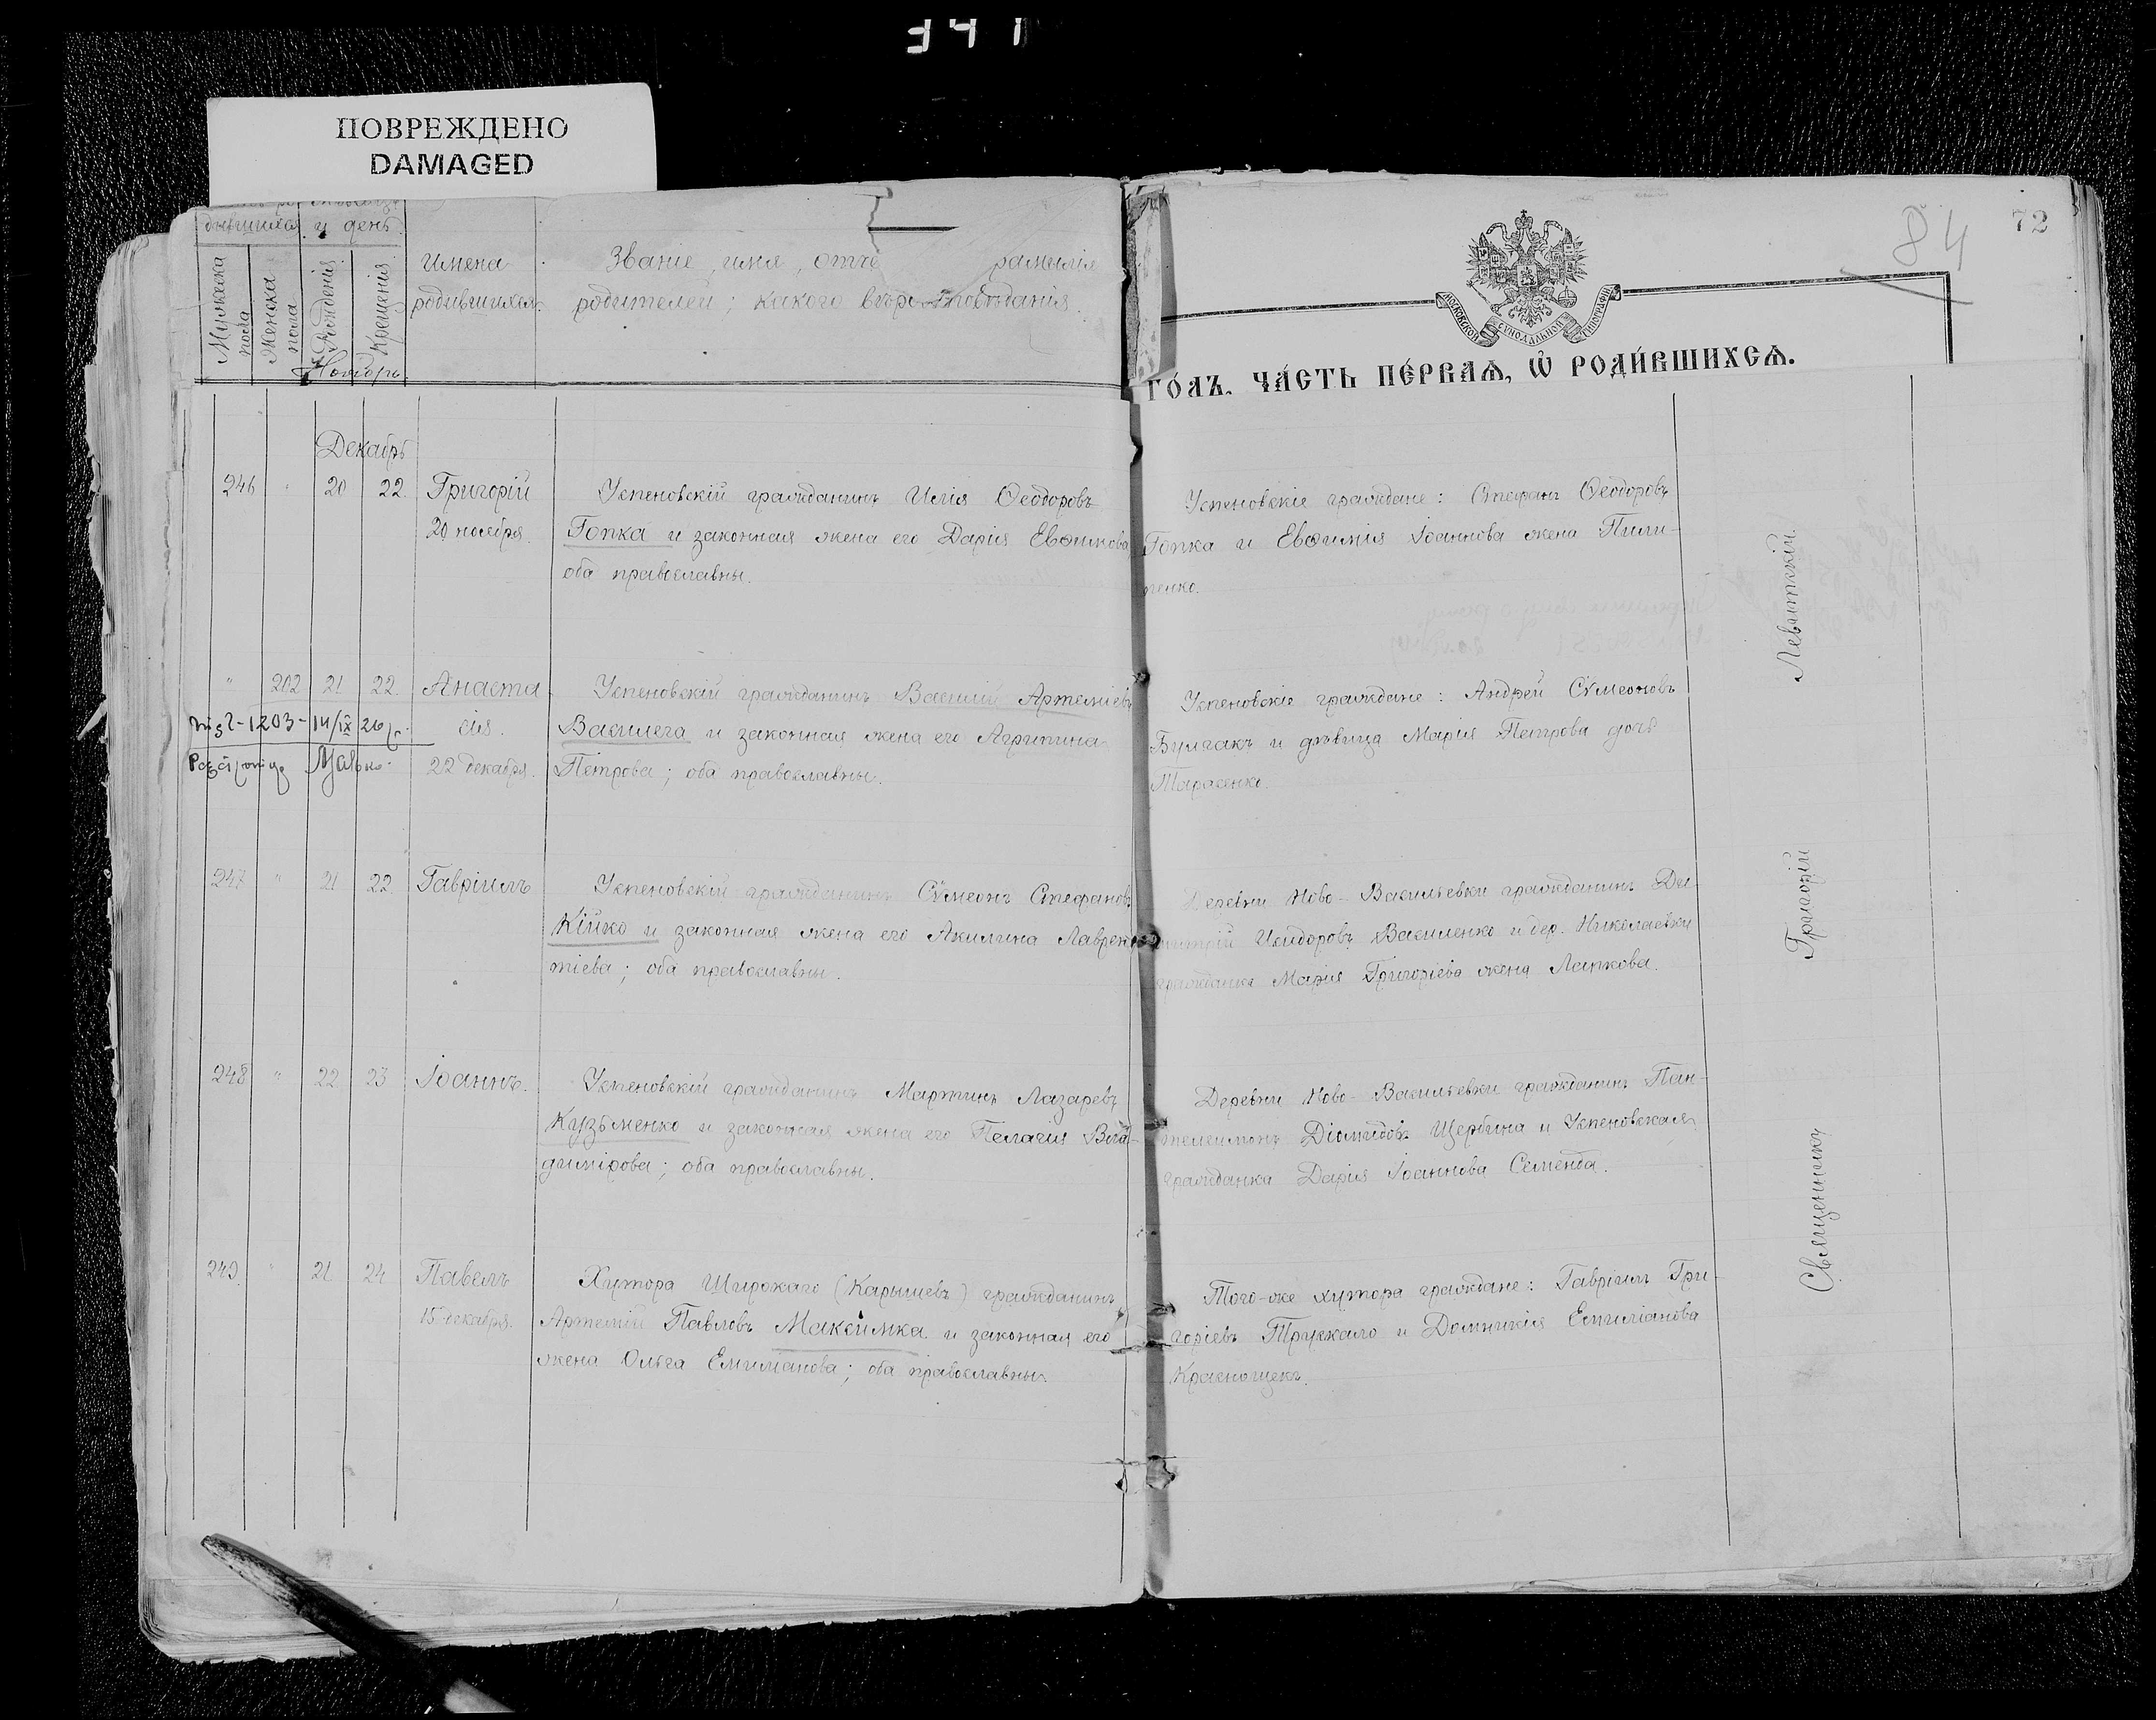 341
ПОВРЕЖДЕНО
DAMAGED
84
72
МОСКОВСКОЙ СѴНОДАЛЬНОЙ ТИПОГРАФІИ
дившихся и день.
Мужеска пола
Женска пола
Рожденія
Крещенія
Имена родившихся.
Званіе, имя, отче фамилія
родителей; какого вѣроисповѣданія.
Ноябрь
го́дъ. Ча́сть пе́рвая, ѡ҆ роди́вшихся.
Декабрь
246 " 20 22. Григорій
20 ноября.
Успеновскій гражданинъ Илія Ѳеодоровъ
Гопка и законная жена его Дарія Евѳимова
оба православны.
Успеновскіе граждане: Стефанъ Ѳеодоровъ
Гопка и Евѳимія Іоаннова жена Пили-
пенко.
" 202 21 22. Анаста-
сія.
22 декабря.
1203 - 14/IX 26 р.
Успеновскій гражданинъ Василій Артеміевъ
Василега и законная жена его Агрипина
Петрова; оба православны.
Успеновскіе граждане: Андрей Сѵмеоновъ
Булгакъ и дѣвица Марія Петрова дочь
Тарасенко.
247 " 21 22 Гавріилъ
Успеновскій гражданинъ Сѵмеонъ Стефановъ
Кійко и законная жена его Акилина Лаврен-
тіева; оба православны.
Деревни Ново-Васильевки гражданинъ Ди-
митрій Исидоровъ Василенко и дер. Николаевки
гражданка Марія Григоріева жена Лапкова.
248 " 22 23 Іоаннъ.
Успеновскій гражданинъ Мартинъ Лазаревъ
Кузьменко и законная жена его Пелагія Вла-
димірова; оба православны.
Деревни Ново-Васильевки гражданинъ Пан-
телеимонъ Діомидовъ Щербина и Успеновская
гражданка Дарія Іоаннова Семенда.
249. " 21 24 Павелъ
15 декабря.
Хутора Широкаго (Карышевъ) гражданинъ
Артемій Павловъ Максимка и законная его
жена Ольга Емиліанова; оба православны.
Того-же хутора граждане: Гавріилъ Гри-
горіевъ Трукало и Домникія Емиліанова
Краснощекъ.
Священникъ Григорій Левитскій.